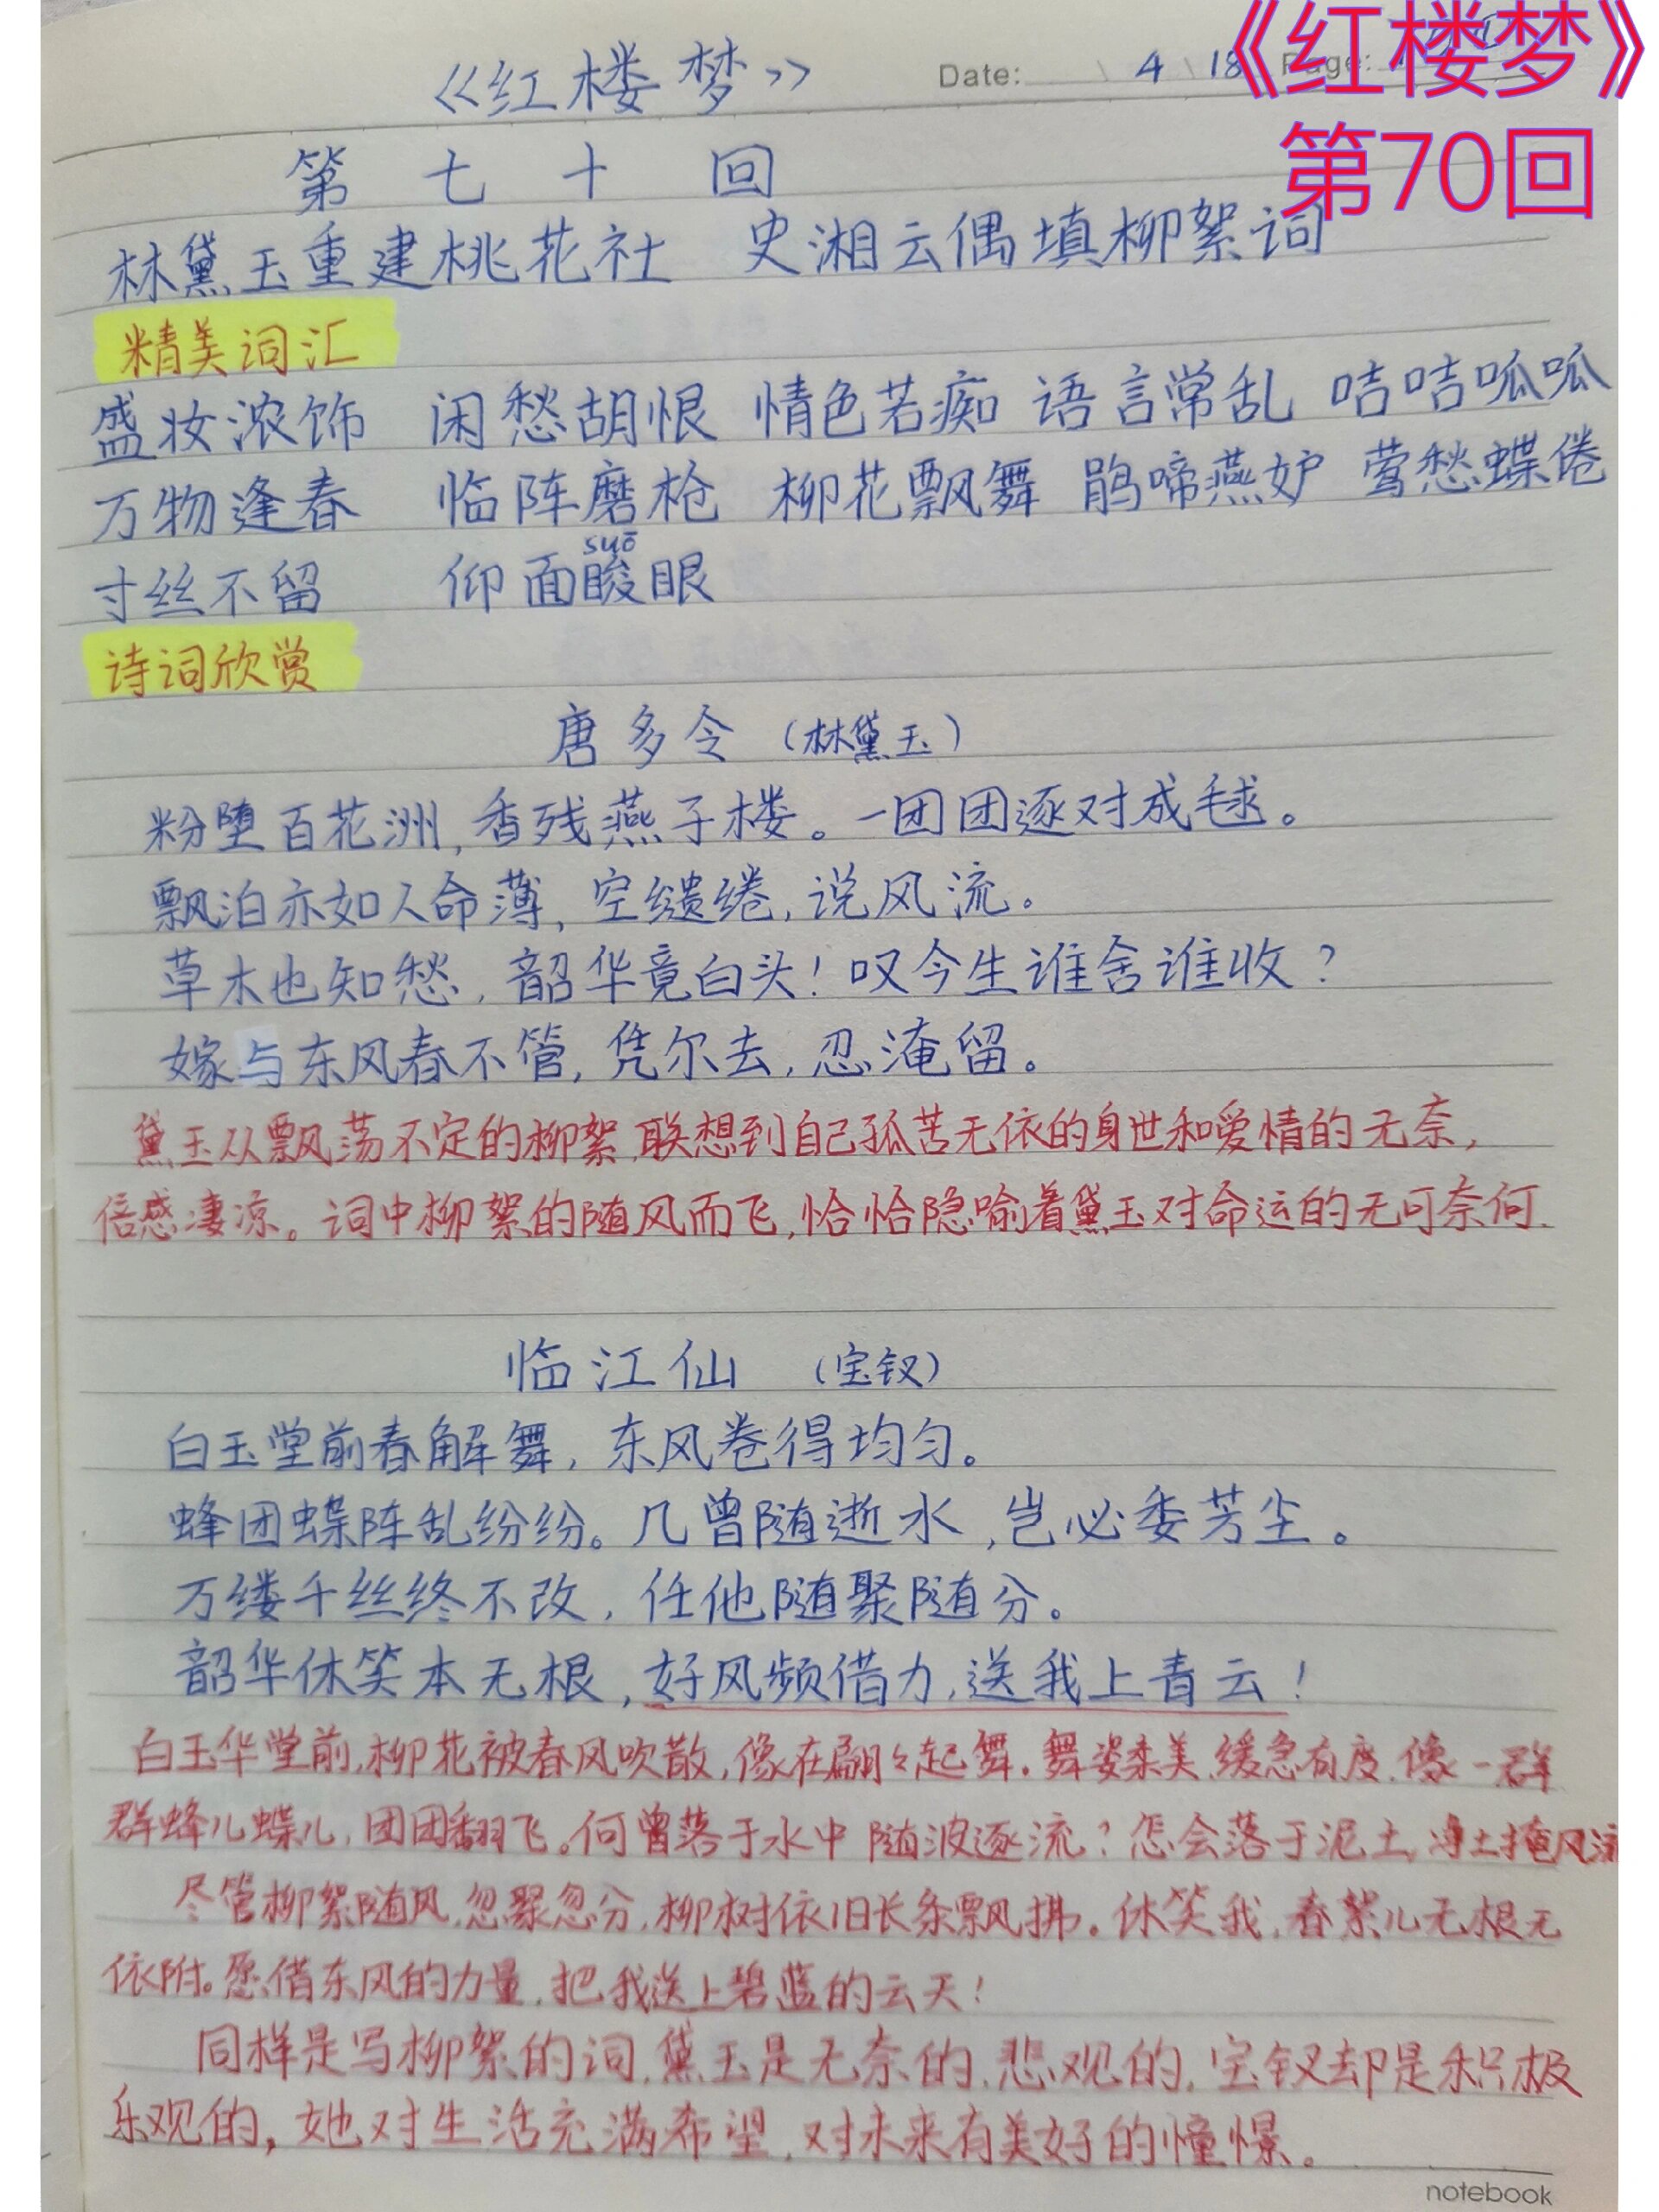 《红楼梦》
第70回
《红楼梦》 Date: 4 \ 18 Page:
第七十回
林黛玉重建桃花社 史湘云偶填柳絮词
精美词汇
盛妆浓饰 闲愁胡恨 情色若痴 语言常乱 咭咭呱呱
万物逢春 临阵磨枪 柳花飘舞 鹃啼燕妒 莺愁蝶倦
suō
寸丝不留 仰面睃眼
诗词欣赏
唐多令 (林黛玉)
粉堕百花洲,香残燕子楼。一团团逐对成毬。
飘泊亦如人命薄,空缱绻,说风流。
草木也知愁,韶华竟白头!叹今生谁舍谁收?
嫁与东风春不管,凭尔去,忍淹留。
黛玉从飘荡不定的柳絮,联想到自己孤苦无依的身世和爱情的无奈,
倍感凄凉。词中柳絮的随风而飞,恰恰隐喻着黛玉对命运的无可奈何.
临江仙 (宝钗)
白玉堂前春解舞,东风卷得均匀。
蜂团蝶阵乱纷纷。几曾随逝水,岂必委芳尘。
万缕千丝终不改,任他随聚随分。
韶华休笑本无根,好风频借力,送我上青云!
白玉华堂前,柳花被春风吹散,像在翩々起舞.舞姿柔美,缓急有度,像一群
群蜂儿蝶儿,团团翻飞。何曾落于水中随波逐流?怎会落于泥土,净土掩风流
尽管柳絮随风,忽聚忽分,柳树依旧长条飘拂。休笑我,春絮儿无根无
依附。愿借东风的力量,把我送上碧蓝的云天!
同样是写柳絮的词,黛玉是无奈的,悲观的,宝钗却是积极
乐观的,她对生活充满希望,对未来有美好的憧憬。
notebook